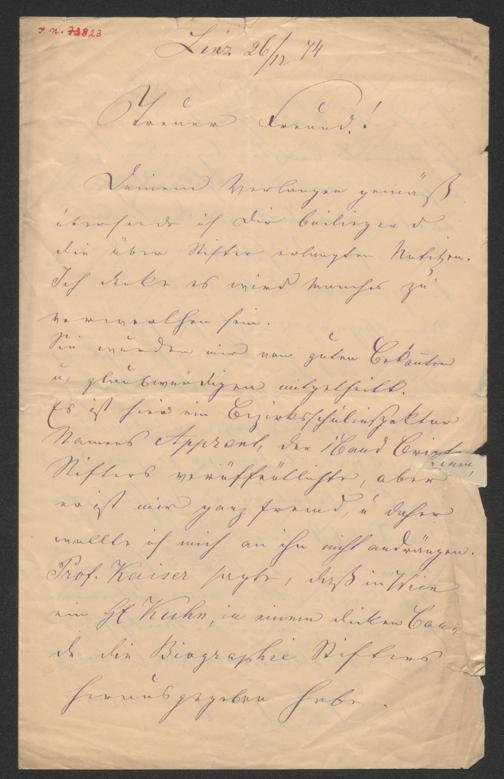 J. N. 73823
Linz 26/12 74
Treuer Freund!
Deinem Verlangen gemäß
übersende ich Dir beiliegend
die über Stifter erlangten Notitzen.
Ich denke es wird manches zu
verwerthen sein.
Sie wurden mir von guten Bekannten
u, glaubwürdigen mitgetheilt.
Es ist hier ein Bezirksschulinspektor
Namens Apprent, der 1 Band Briefe
Stifters veröffentlichte, aber
er ist mir ganz fremd, u daher
wollte ich mich an ihn nicht andrängen.
Prof. Kaiser sagte, daß in Wien
ein H Kuhn, in einem dicken Ban-
de die Biographie Stifters
herausgegeben habe.